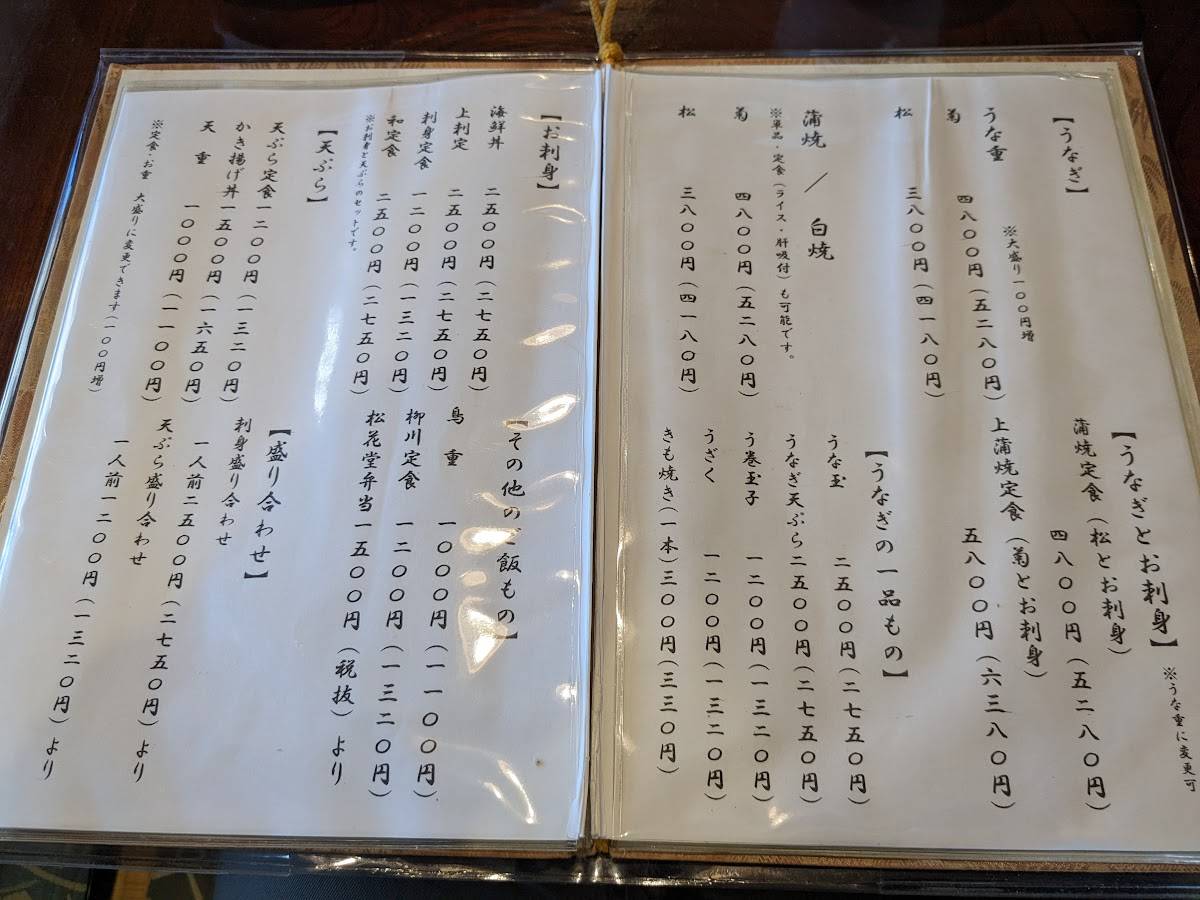 【うなぎ】
※大盛り一〇〇円増
うな重
菊 四八〇〇円(五二八〇円)
松 三八〇〇円(四一八〇円)
蒲焼 / 白焼
※単品・定食(ライス・肝吸付)も可能です。
菊 四八〇〇円(五二八〇円)
松 三八〇〇円(四一八〇円)
【うなぎとお刺身】
※うな重に変更可
蒲焼定食(松とお刺身)
四八〇〇円(五二八〇円)
上蒲焼定食(菊とお刺身)
五八〇〇円(六三八〇円)
【うなぎの一品もの】
うな玉 二五〇〇円(二七五〇円)
うなぎ天ぷら二五〇〇円(二七五〇円)
う巻玉子 一二〇〇円(一三二〇円)
うざく 一二〇〇円(一三二〇円)
きも焼き(一本)三〇〇円(三三〇円)
【お刺身】
海鮮丼 二五〇〇円(二七五〇円)
上刺定 二五〇〇円(二七五〇円)
刺身定食 一二〇〇円(一三二〇円)
和定食 二五〇〇円(二七五〇円)
※お刺身と天ぷらのセットです。
【天ぷら】
天ぷら定食一二〇〇円(一三二〇円)
かき揚げ丼一五〇〇円(一六五〇円)
天重 一〇〇〇円(一一〇〇円)
※定食・お重 大盛りに変更できます(一〇〇円増)
【その他のご飯もの】
鳥重 一〇〇〇円(一一〇〇円)
柳川定食 一二〇〇円(一三二〇円)
松花堂弁当一五〇〇円(税抜)より
【盛り合わせ】
刺身盛り合わせ
一人前二五〇〇円(二七五〇円)より
天ぷら盛り合わせ
一人前一二〇〇円(一三二〇円)より